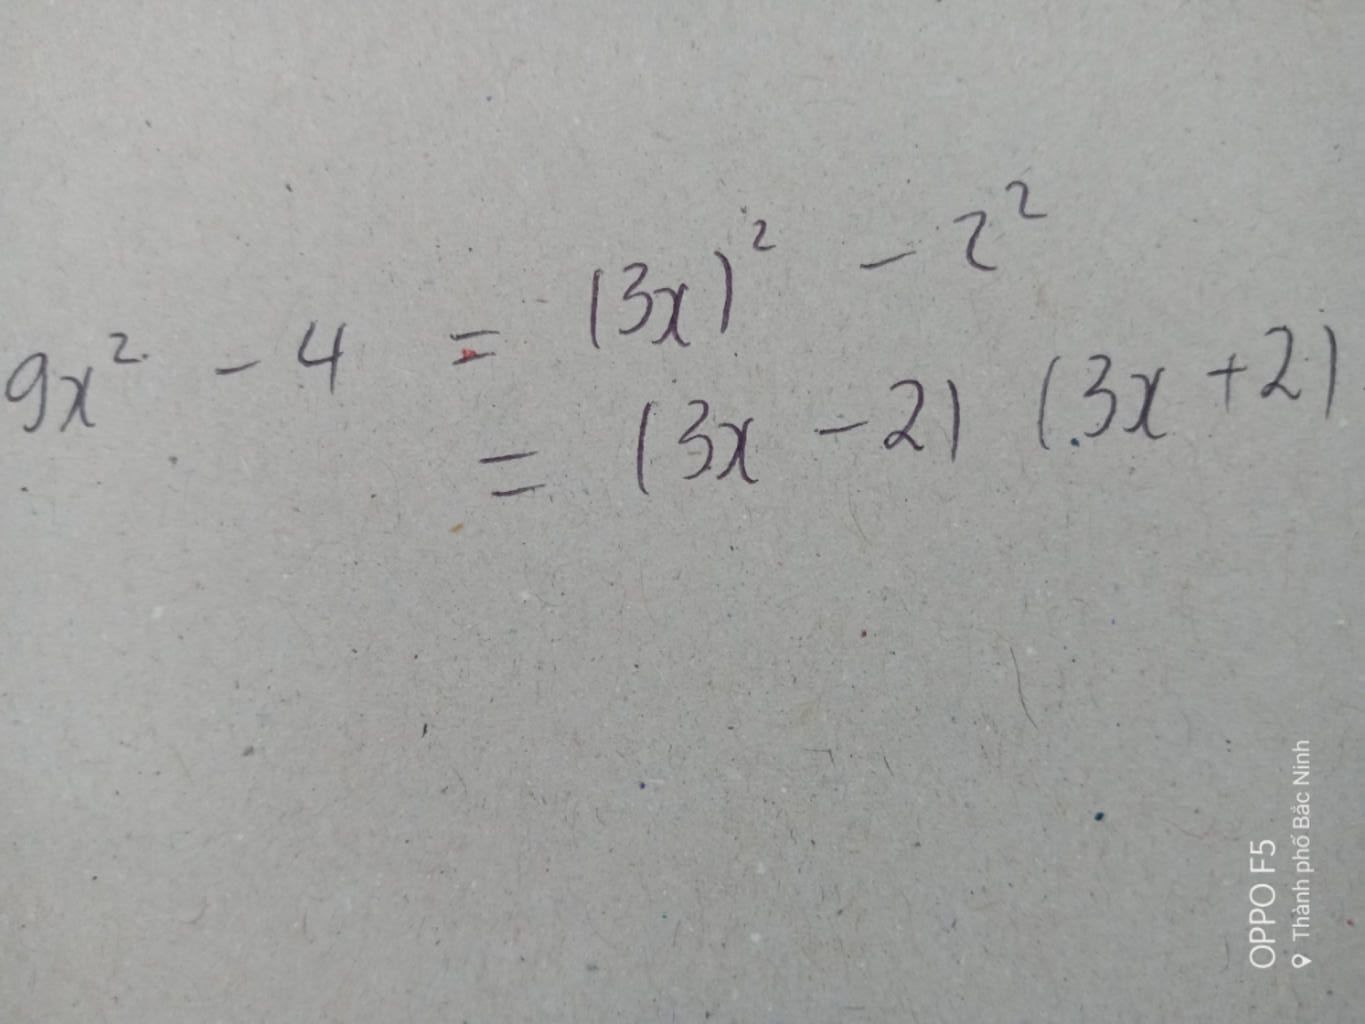 9x² - 4 = (3x)² - 2²
= (3x - 2) (3x + 2)
OPPO F5
Thành phố Bắc Ninh